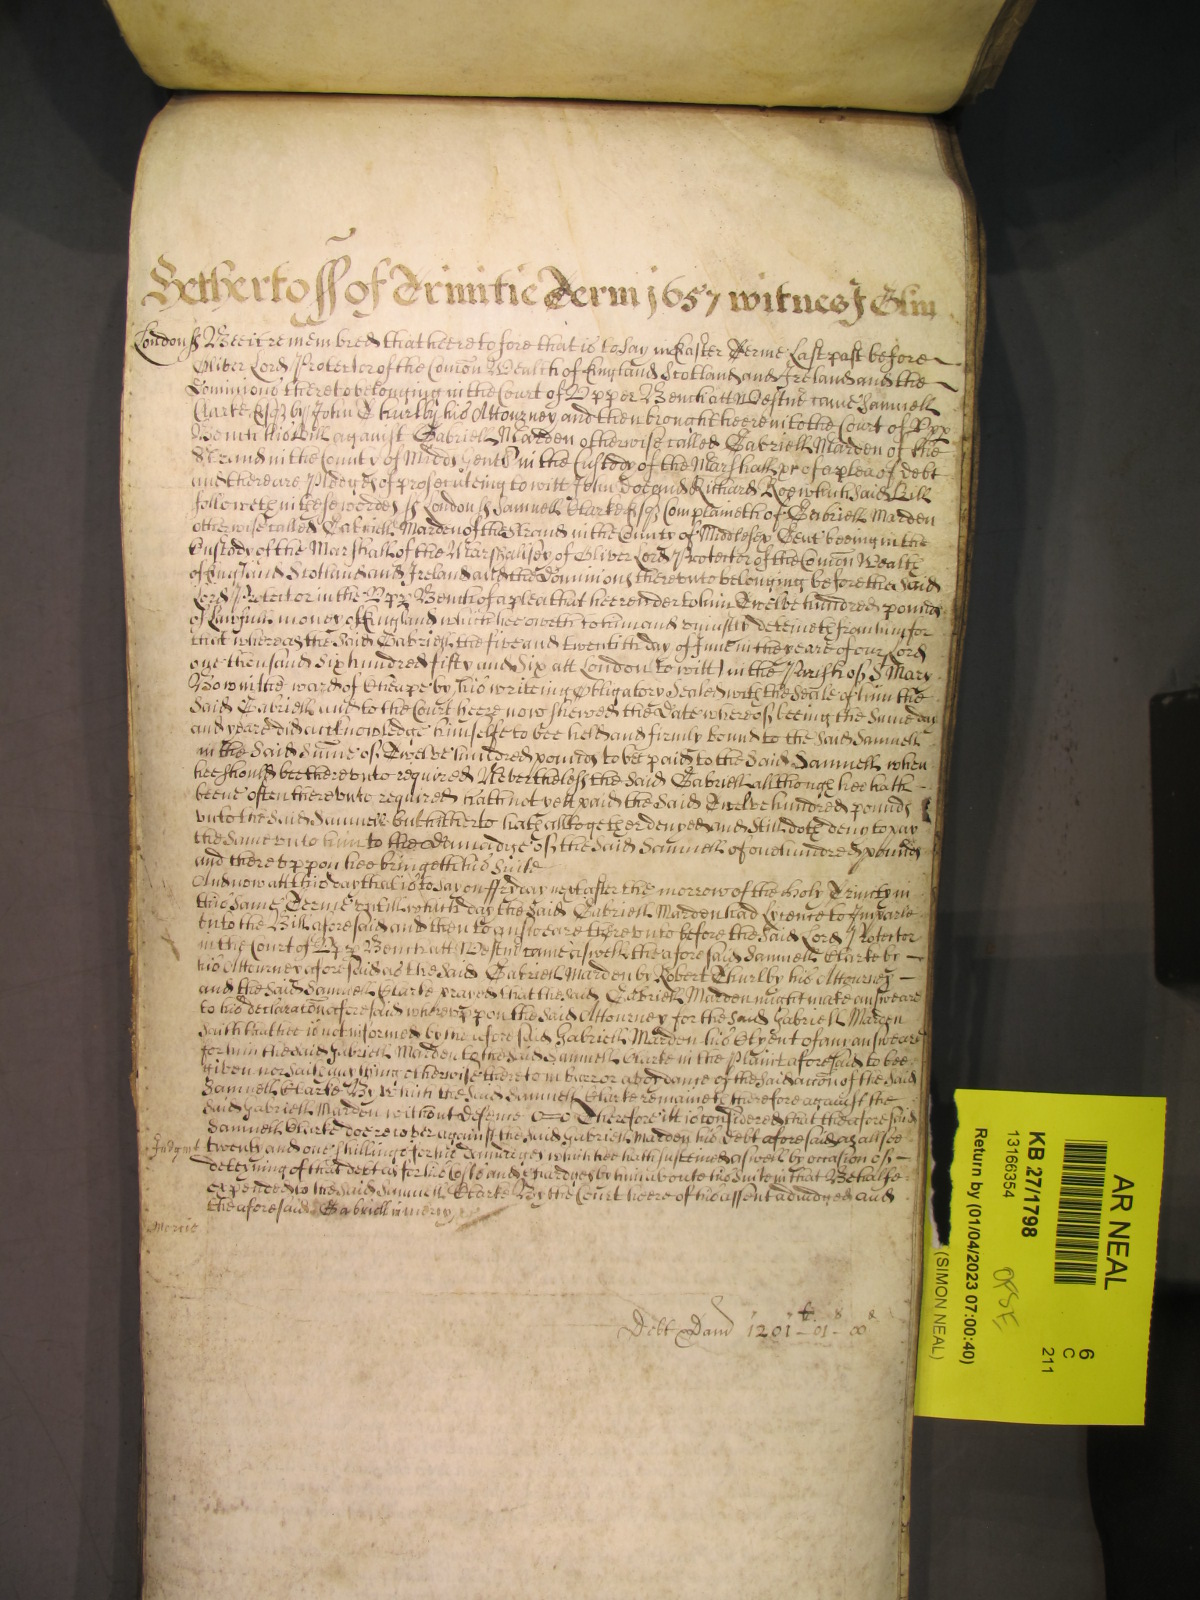 Hetherto ss of Trinitie Terme 1657 witnes J Glin
London ss Bee it remembred that heeretofore that is to say in Easter Terme Last past before
Oliver Lord Protector of the Comon Wealth of England Scotland and Ireland and the
Dominions thereto belonging in the Court of Upper Bench att Westmr came Samuell
Clarke Esqr by John Thurlby his Attourney and then brought heere into the Court of Upp
Bench his Bill against Gabriell Marden otherwise called Gabriell Marden of the
Strand in the County of Middx Gent in the Custody of the Marshall &c of a plea of debt
and there are Pledges of prosecuteing to witt John Doe and Richard Roe which said Bill
followeth in these wordes ss London ss Samuell Clarke Esqr Complaineth of Gabriell Marden
otherwise called Gabriell Marden of the Strand in the County of Middlesex Gent beeing in the
Custody of the Marshall of the Marshalsey of Oliver Lord Protector of the Comon Wealth
of England Scotland and Ireland and the Dominions thereunto belonging before the said
Lord Protector in the Upp Bench of a plea that hee render to him Twelve hundred pounds
of Lawfull money of England which hee oweth to him and uniustly deteineth from him for
that whereas the said Gabriell the five and twentith day of June in the yeare of our Lord
one thousand six hundred fifty and six att London to witt in the Parish of S Mary
Bow in the ward of Cheape by his writeing Obligatory Sealed with the Seale of him the
said Gabriell and to the Court heere now shewed the Date whereof beeing the same day
and yeare did acknowledge himselfe to bee held and firmly bound to the said Samuell
in the said sume of Twelve hundred pounds to bee paid to the said Samuell when
hee should bee thereunto required Neverthelesse the said Gabriell although hee hath
beene often thereunto required hath not yett paid the said Twelve hundred pounds
unto the said Samuell but hitherto hath altogether denyed and still doth deny to pay
the same unto him to the Damadge of the said Samuell of one hundred pounds
and thereuppon hee bringeth his suite
And now att this day that is to say on ffryday next after the morrow of the Holy Trinity in
this same Terme untill which day the said Gabriell Marden had Lycence to Imparle
unto the Bill aforesaid and then to answeare thereunto before the said Lord Protector
in the Court of Upp Bench att Westmr came aswell the aforesaid Samuell Clarke by
his Attourney aforesaid as the said Gabriell Marden by Robert Thurlby his Attourney
and the said Samuell Clarke prayed that the said Gabriell Marden might make answeare
to his declaracon aforesaid whereuppon the said Attourney for the said Gabriell Marden
saith that hee is not informed by the aforesaid Gabriell Marden his Clyent of any answeare
for him the said Gabriell Marden to the said Samuell Clarke in the Plaint aforesaid to bee
given nor said any thing otherwise thereto in barr or avoydance of the said accon of the said
Samuell Clarke By which the said Samuell Clarke remaineth therefore against the
said Gabriell Marden without defence &c Therefore itt is considered that the aforesaid
Samuell Clarke doe recover against the said Gabriell Marden his debt aforesaid as allsoe
Judgmt twenty and one shillinges for his damadges which hee hath susteined aswell by occasion of
deteyning of that debt as for his Costs and Chardges by him about his suite in that Behalfe
expended to the said Samuell Clarke By the Court heere of his assent adiudged and
the aforesaid Gabriell in mercy
Mercie
Debt Dam 1201 - 01 - 00
AR NEAL
6
C
211
KB 27/1798
13166354
Return by (01/04/2023 07:00:40)
(SIMON NEAL)